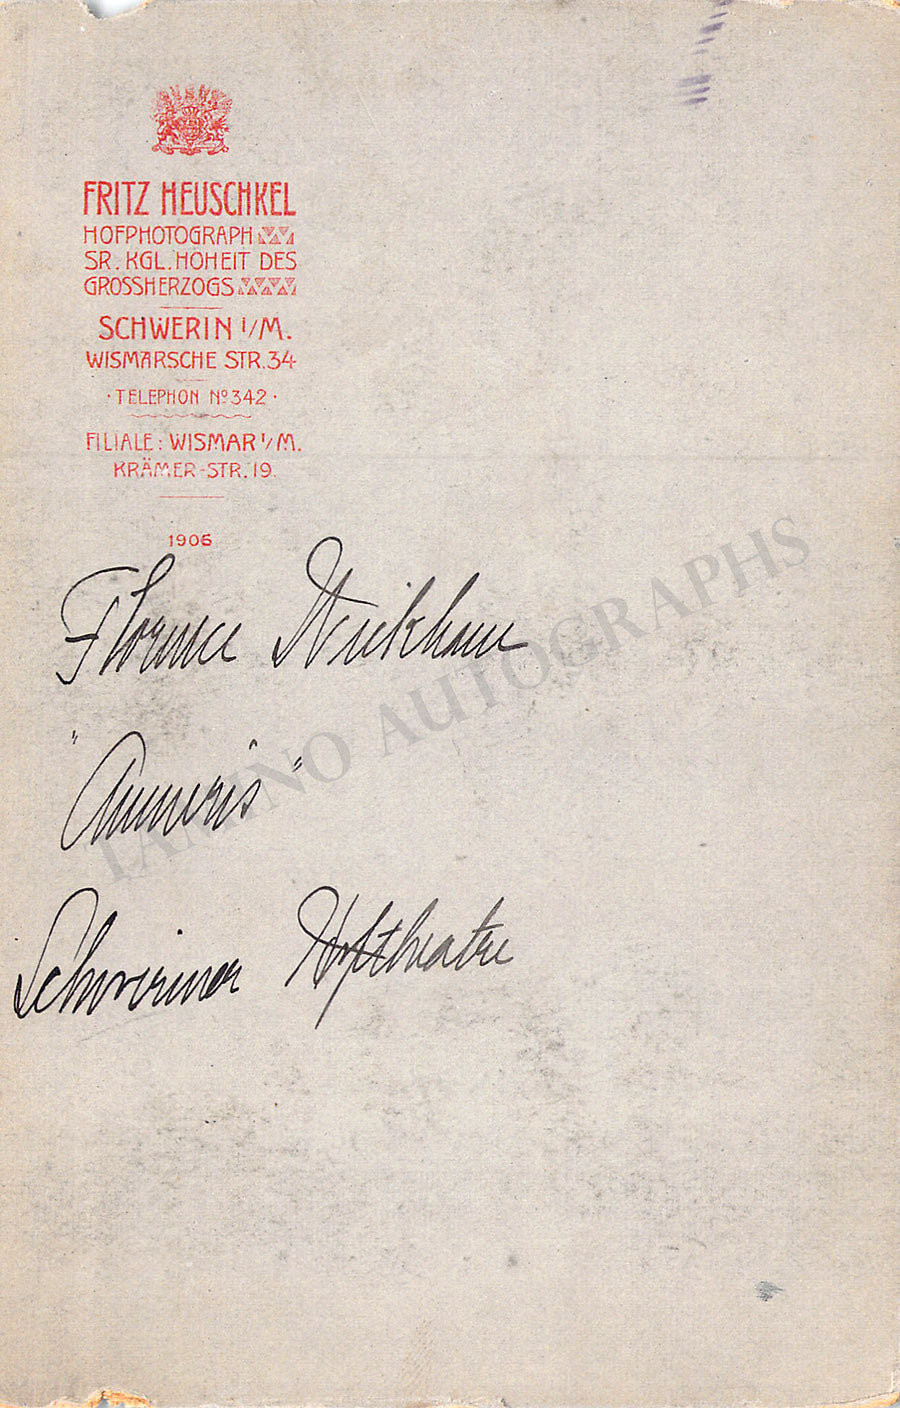 FRITZ HEUSCHKEL
HOFPHOTOGRAPH
SR. KGL. HOHEIT DES
GROSSHERZOGS
SCHWERIN i/M.
WISMARSCHE STR. 34
· TELEPHON No 342 ·
FILIALE: WISMAR i/M.
KRÄMER-STR. 19.
1906
Florence Wickham
"Amneris"
Schweriner Hoftheatre
TAMINO AUTOGRAPHS